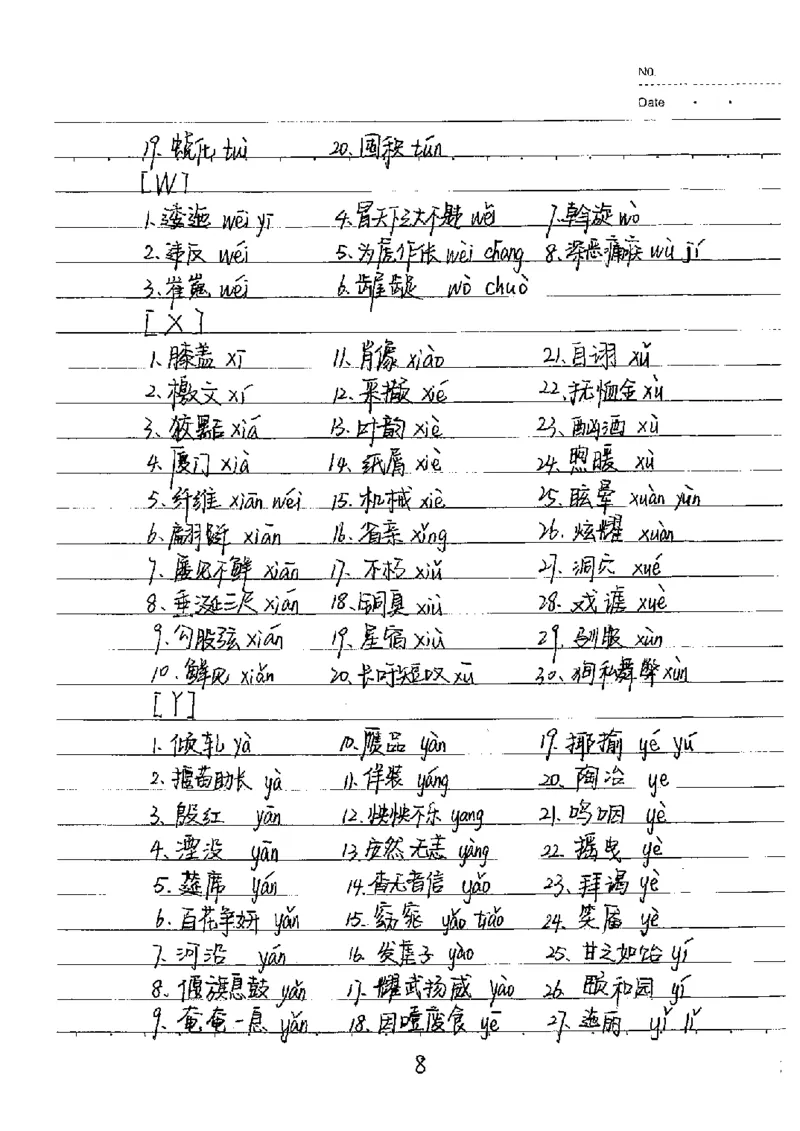 NO.
Date
19. 蜕化 tuì 20. 囤积 tún
[W]
1. 逶迤 wēi yí 4. 冒天下之大不韪 wěi 7. 斡旋 wò
2. 违反 wéi 5. 为虎作伥 wèi chāng 8. 深恶痛疾 wù jí
3. 崔巍 wéi 6. 龌龊 wò chuò
[X]
1. 膝盖 xī 11. 肖像 xiào 21. 自诩 xǔ
2. 檄文 xí 12. 采撷 xié 22. 抚恤金 xù
3. 狡黠 xiá 13. 叶韵 xié 23. 酗酒 xù
4. 厦门 xià 14. 纸屑 xiè 24. 煦暖 xù
5. 纤维 xiān wéi 15. 机械 xiè 25. 眩晕 xuàn yùn
6. 翩跹 xiān 16. 省亲 xǐng 26. 炫耀 xuàn
7. 屡见不鲜 xiān 17. 不朽 xiǔ 27. 洞穴 xué
8. 垂涎三尺 xián 18. 铜臭 xiù 28. 戏谑 xuè
9. 勾股弦 xián 19. 星宿 xiù 29. 驯服 xùn
10. 鲜见 xiǎn 20. 长吁短叹 xū 30. 徇私舞弊 xùn
[Y]
1. 倾轧 yà 10. 赝品 yàn 19. 揶揄 yé yú
2. 揠苗助长 yà 11. 佯装 yáng 20. 陶冶 ye
3. 殷红 yān 12. 怏怏不乐 yang 21. 呜咽 yè
4. 湮没 yān 13. 安然无恙 yàng 22. 摇曳 yè
5. 筵席 yán 14. 杳无音信 yǎo 23. 拜谒 yè
6. 百花争妍 yán 15. 窈窕 yǎo tiǎo 24. 笑靥 yè
7. 河沿 yán 16. 发疟子 yào 25. 甘之如饴 yí
8. 偃旗息鼓 yǎn 17. 耀武扬威 yào 26. 颐和园 yí
9. 奄奄一息 yǎn 18. 因噎废食 yē 27. 迤逦 yǐ lǐ
8